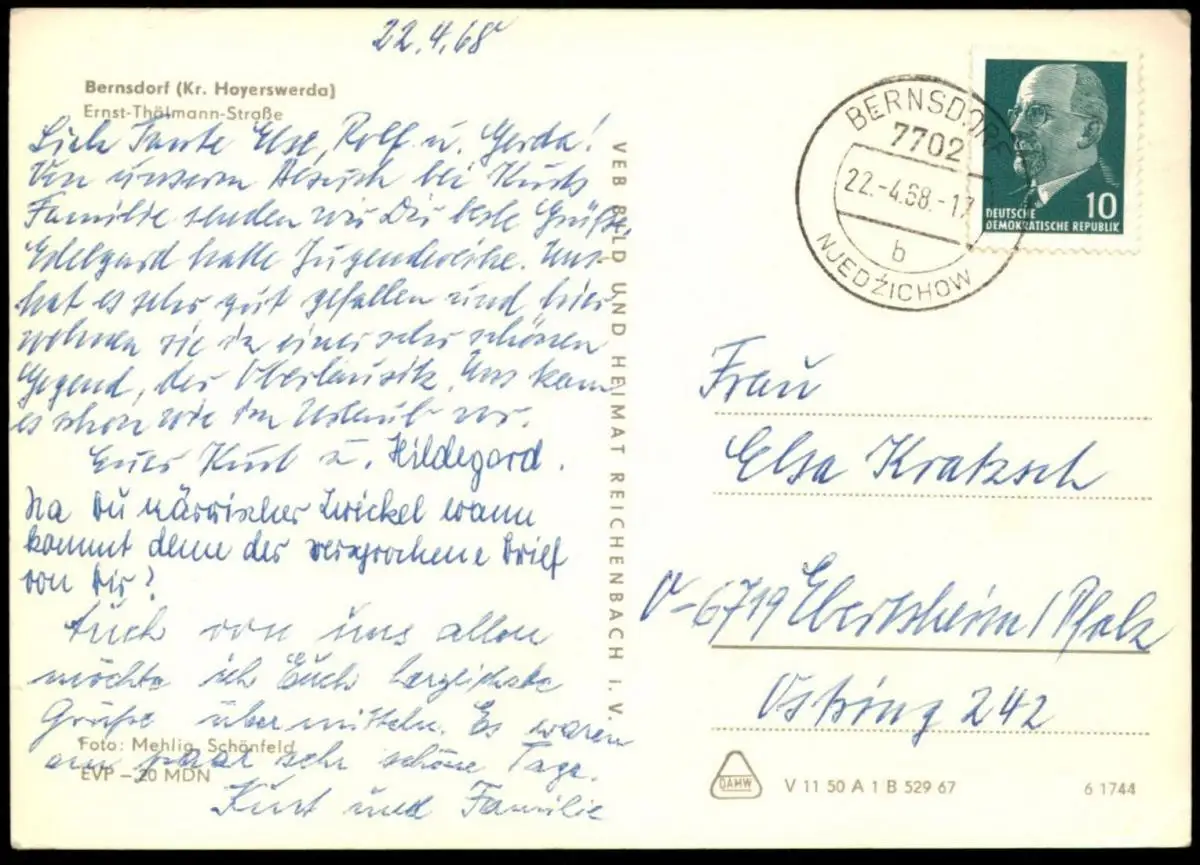 22.4.68
Bernsdorf (Kr. Hoyerswerda)
Ernst-Thälmann-Straße
Liebe Tante Else, Rolf u. Gerda!
Von unserm Besuch bei Kurts
Familie senden wir Dir beste Grüße,
Edelgard hatte Jugendweihe. Uns
hat es sehr gut gefallen und hier
wohnen sie in einer sehr schönen
Gegend, der Oberlausitz. Uns kam
es schon wie im Urlaub vor.
Euer Kurt u. Hildegard.
Na Du närrischer Zwickel wann
kommt denn der versprochene Brief
von Dir?
Auch von uns allen
möchte ich Euch herzlichste
Grüße übermitteln. Es waren
ein paar sehr schöne Tage.
Kurt und Familie
Foto: Mehlig, Schönfeld
EVP – 20 MDN
VEB BILD UND HEIMAT REICHENBACH i. V.
BERNSDORF
7702
22.-4.68.-17
b
NJEDŹICHOW
10
DEUTSCHE
DEMOKRATISCHE REPUBLIK
Frau
Elsa Kratzsch
V-6719 Ebertsheim/Pfalz
Ostring 242
DAMW
V 11 50 A 1 B 529 67
6 1744